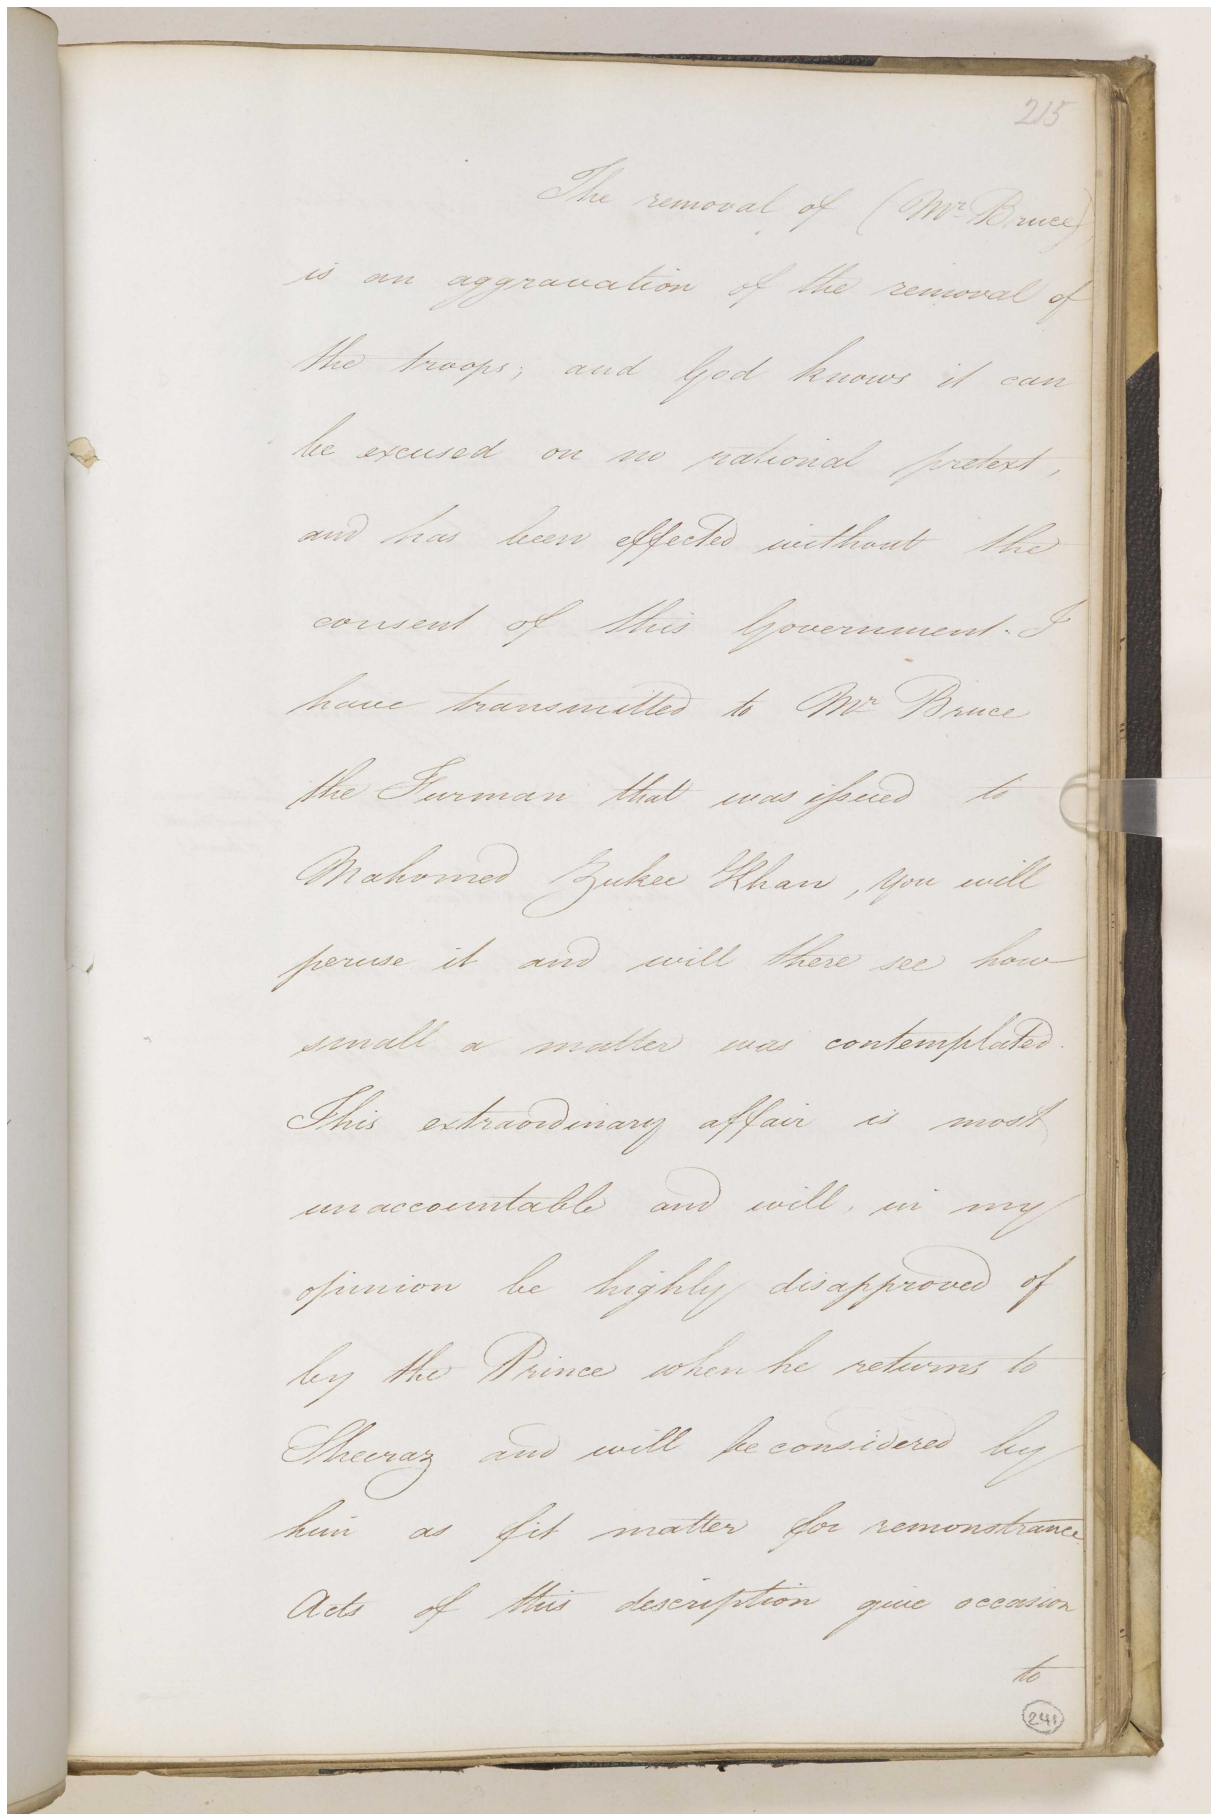 215
The removal of (Mr. Bruce)
is an aggravation of the removal of
the troops; and God knows it can
be excused on no rational pretext,
and has been effected without the
consent of this Government. I
have transmitted to Mr. Bruce
the Furman that was issued to
Mahomed Zukee Khan, you will
peruse it and will there see how
small a matter was contemplated.
This extraordinary affair is most
unaccountable and will, in my
opinion be highly disapproved of
by the Prince when he returns to
Sheeraz and will be considered by
him as fit matter for remonstrance.
Acts of this description give occasion
to
241